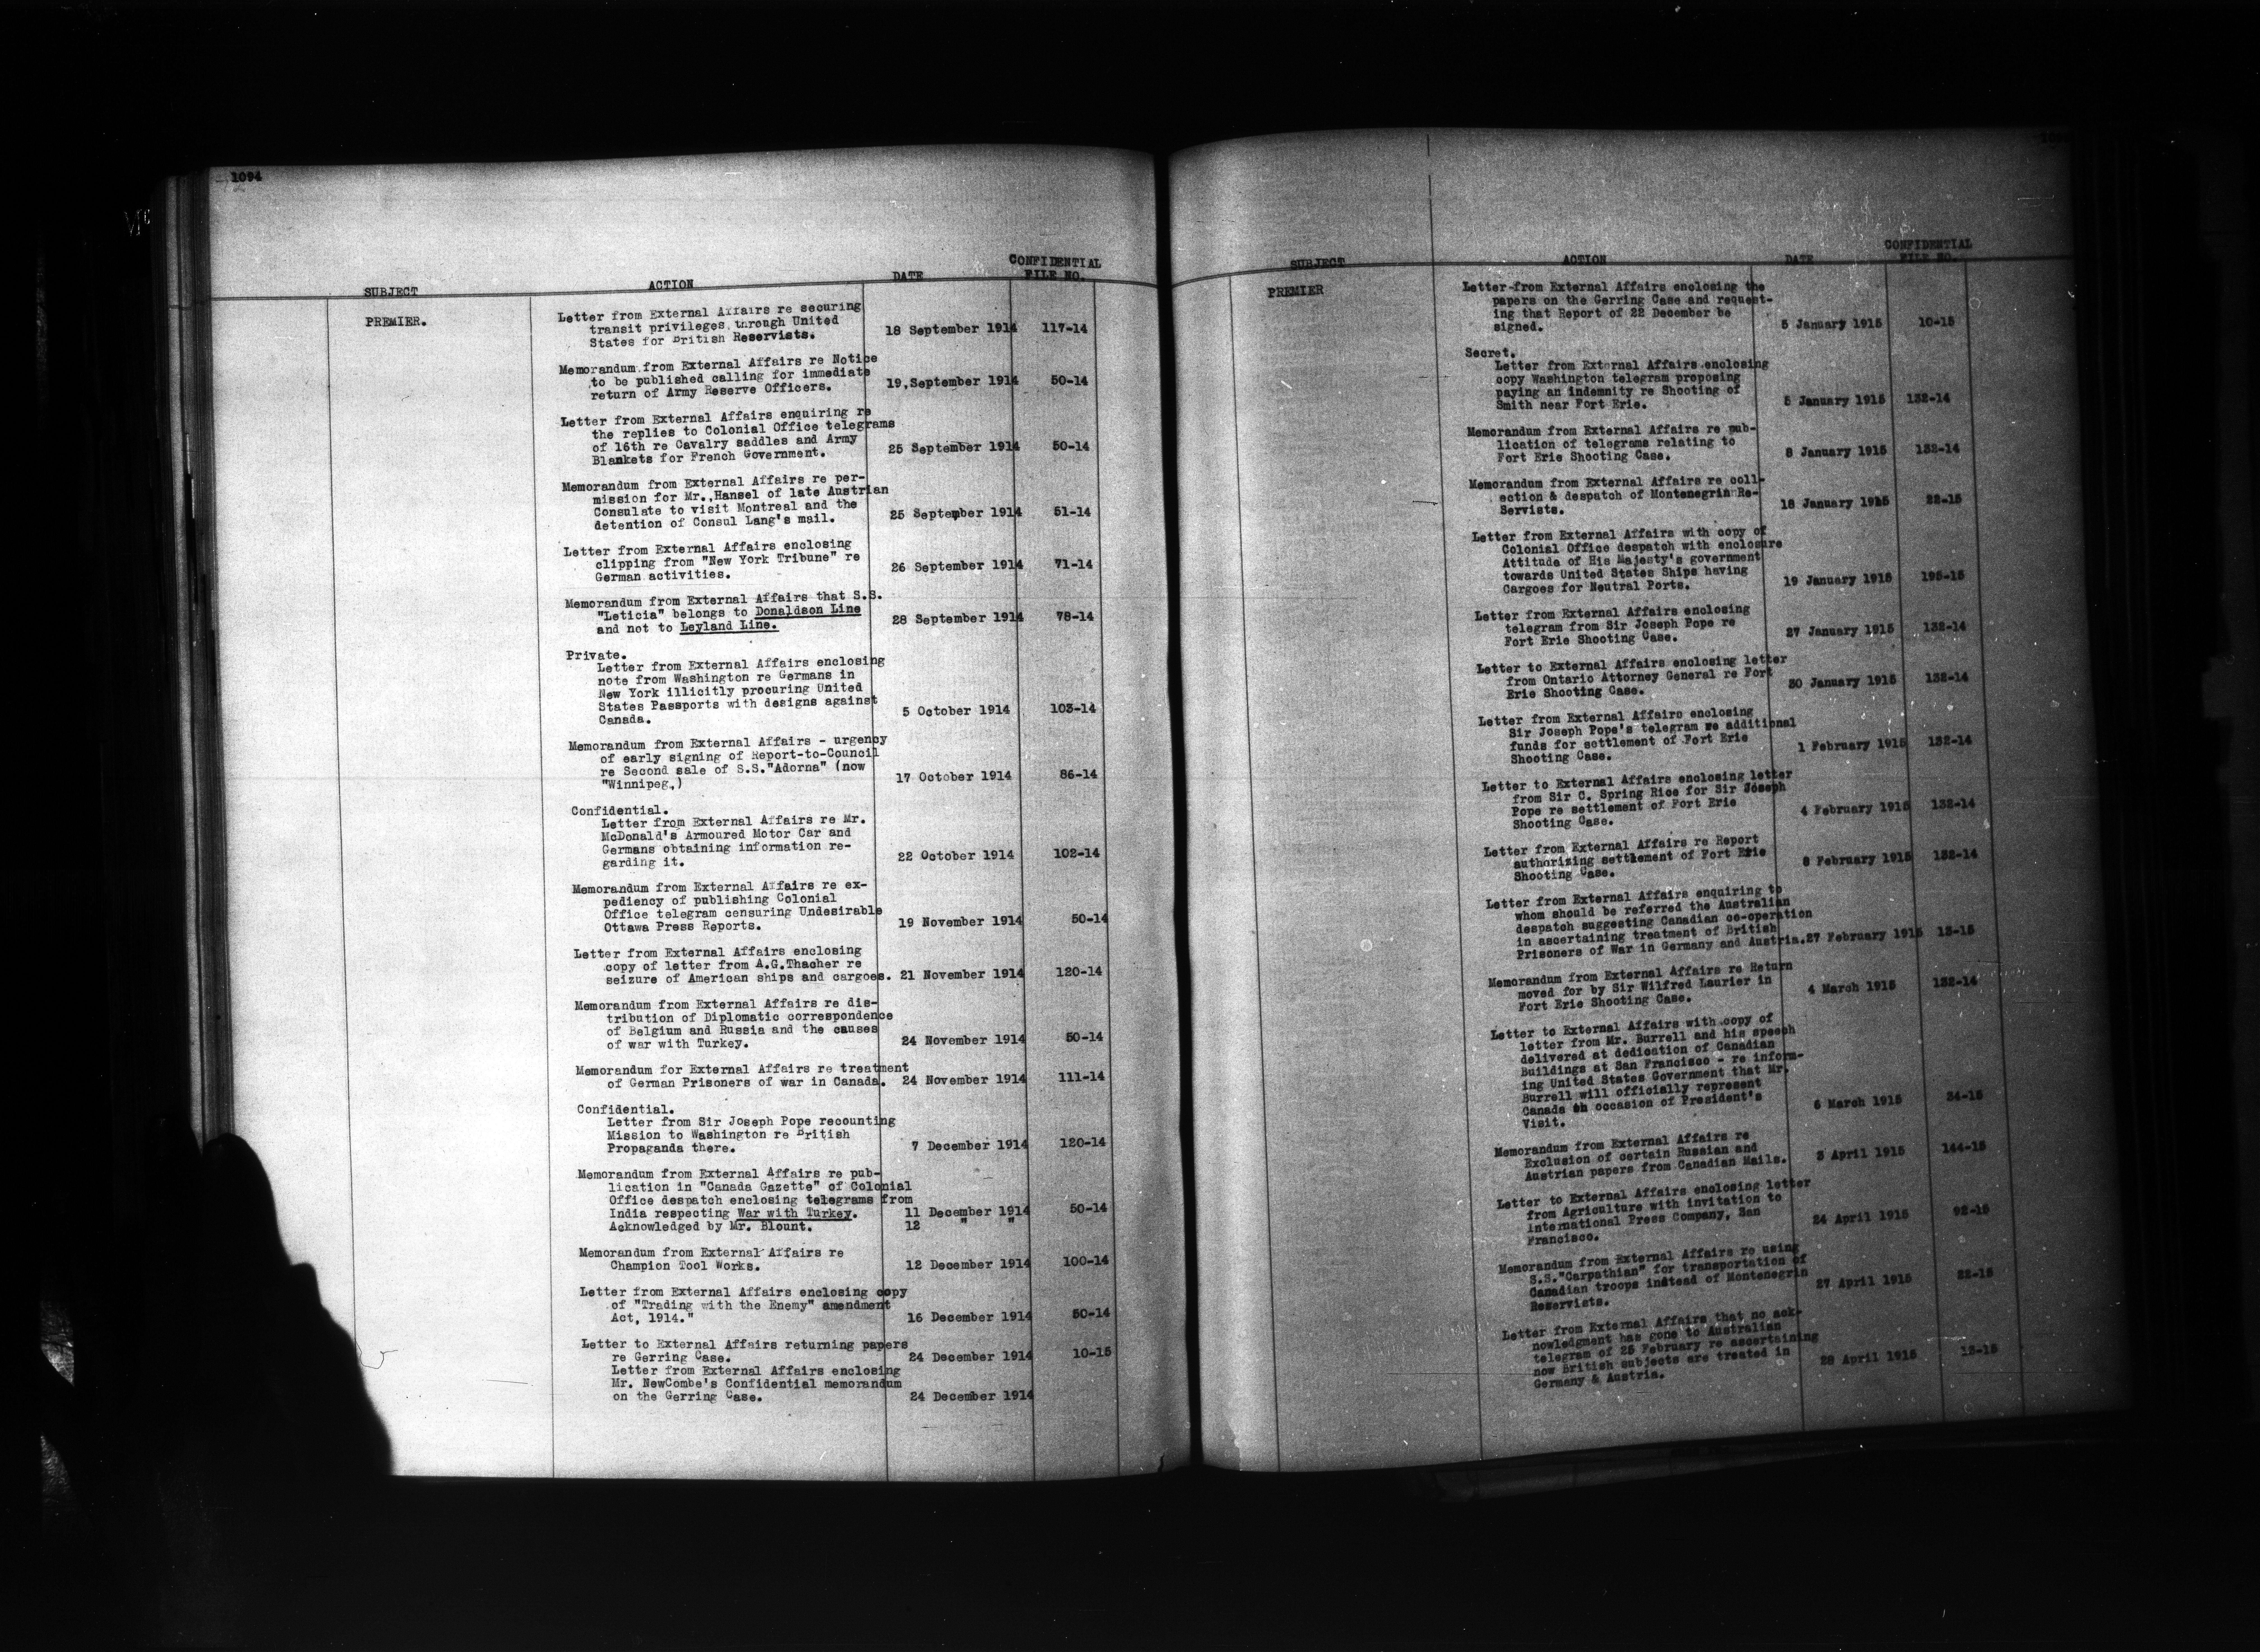 1094
CONFIDENTIAL
SUBJECT ACTION DATE FILE NO.
PREMIER.
Letter from External Affairs re securing
transit privileges through United
States for British Reservists. 18 September 1914 117-14
Memorandum from External Affairs re Notice
to be published calling for immediate
return of Army Reserve Officers. 19, September 1914 50-14
Letter from External Affairs enquiring re
the replies to Colonial Office telegrams
of 16th re Cavalry saddles and Army
Blankets for French Government. 25 September 1914 50-14
Memorandum from External Affairs re per-
mission for Mr., Hansel of late Austrian
Consulate to visit Montreal and the
detention of Consul Lang's mail. 25 September 1914 51-14
Letter from External Affairs enclosing
clipping from "New York Tribune" re
German activities. 26 September 1914 71-14
Memorandum from External Affairs that S.S.
"Leticia" belongs to Donaldson Line
and not to Leyland Line. 28 September 1914 78-14
Private.
Letter from External Affairs enclosing
note from Washington re Germans in
New York illicitly procuring United
States Passports with designs against
Canada. 5 October 1914 103-14
Memorandum from External Affairs - urgency
of early signing of Report-to-Council
re Second sale of S.S."Adorna" (now
"Winnipeg.,) 17 October 1914 86-14
Confidential.
Letter from External Affairs re Mr.
McDonald's Armoured Motor Car and
Germans obtaining information re-
garding it. 22 October 1914 102-14
Memorandum from External Affairs re ex-
pediency of publishing Colonial
Office telegram censuring Undesirable
Ottawa Press Reports. 19 November 1914 50-14
Letter from External Affairs enclosing
copy of letter from A.G.Thacher re
seizure of American ships and cargoes. 21 November 1914 120-14
Memorandum from External Affairs re dis-
tribution of Diplomatic correspondence
of Belgium and Russia and the causes
of war with Turkey. 24 November 1914 50-14
Memorandum for External Affairs re treatment
of German Prisoners of war in Canada. 24 November 1914 111-14
Confidential.
Letter from Sir Joseph Pope recounting
Mission to Washington re British
Propaganda there. 7 December 1914 120-14
Memorandum from External Affairs re pub-
lication in "Canada Gazette" of Colonial
Office despatch enclosing telegrams from
India respecting War with Turkey. 11 December 1914 50-14
Acknowledged by Mr. Blount. 12 " "
Memorandum from External Affairs re
Champion Tool Works. 12 December 1914 100-14
Letter from External Affairs enclosing copy
of "Trading with the Enemy" amendment
Act, 1914." 16 December 1914 50-14
Letter to External Affairs returning papers
re Gerring Case. 24 December 1914 10-15
Letter from External Affairs enclosing
Mr. NewCombe's Confidential memorandum
on the Gerring Case. 24 December 1914
CONFIDENTIAL
SUBJECT ACTION DATE FILE NO.
PREMIER
Letter from External Affairs enclosing the
papers on the Gerring Case and request-
ing that Report of 22 December be
signed. 5 January 1915 10-15
Secret.
Letter from External Affairs enclosing
copy Washington telegram proposing
paying an indemnity re Shooting of
Smith near Fort Erie. 5 January 1915 132-14
Memorandum from External Affairs re pub-
lication of telegrams relating to
Fort Erie Shooting Case. 8 January 1915 132-14
Memorandum from External Affairs re coll-
ection & despatch of Montenegrin Re-
Servists. 18 January 1915 22-15
Letter from External Affairs with copy of
Colonial Office despatch with enclosure
Attitude of His Majesty's government
towards United States Ships having
Cargoes for Neutral Ports. 19 January 1915 195-15
Letter from External Affairs enclosing
telegram from Sir Joseph Pope re
Fort Erie Shooting Case. 27 January 1915 132-14
Letter to External Affairs enclosing letter
from Ontario Attorney General re Fort
Erie Shooting Case. 30 January 1915 132-14
Letter from External Affairs enclosing
Sir Joseph Pope's telegram re additional
funds for settlement of Fort Erie
Shooting Case. 1 February 1915 132-14
Letter to External Affairs enclosing letter
from Sir C. Spring Rice for Sir Joseph
Pope re settlement of Fort Erie
Shooting Case. 4 February 1915 132-14
Letter from External Affairs re Report
authorizing settlement of Fort Erie
Shooting Case. 8 February 1915 132-14
Letter from External Affairs enquiring to
whom should be referred the Australian
despatch suggesting Canadian co-operation
in ascertaining treatment of British
Prisoners of War in Germany and Austria. 27 February 1915 13-15
Memorandum from External Affairs re Return
moved for by Sir Wilfred Laurier in
Fort Erie Shooting Case. 4 March 1915 132-14
Letter to External Affairs with copy of
letter from Mr. Burrell and his speech
delivered at dedication of Canadian
Buildings at San Francisco - re inform-
ing United States Government that Mr.
Burrell will officially represent
Canada on occasion of President's
Visit. 6 March 1915 34-15
Memorandum from External Affairs re
Exclusion of certain Russian and
Austrian papers from Canadian Mails. 3 April 1915 144-15
Letter to External Affairs enclosing letter
from Agriculture with invitation to
International Press Company, San
Francisco. 24 April 1915 92-15
Memorandum from External Affairs re using
S.S."Carpathian" for transportation of
Canadian troops instead of Montenegrin
Reservists. 27 April 1915 22-15
Letter from External Affairs that no ack-
nowledgment has gone to Australian
telegram of 25 February re ascertaining
now British subjects are treated in
Germany & Austria. 28 April 1915 13-15